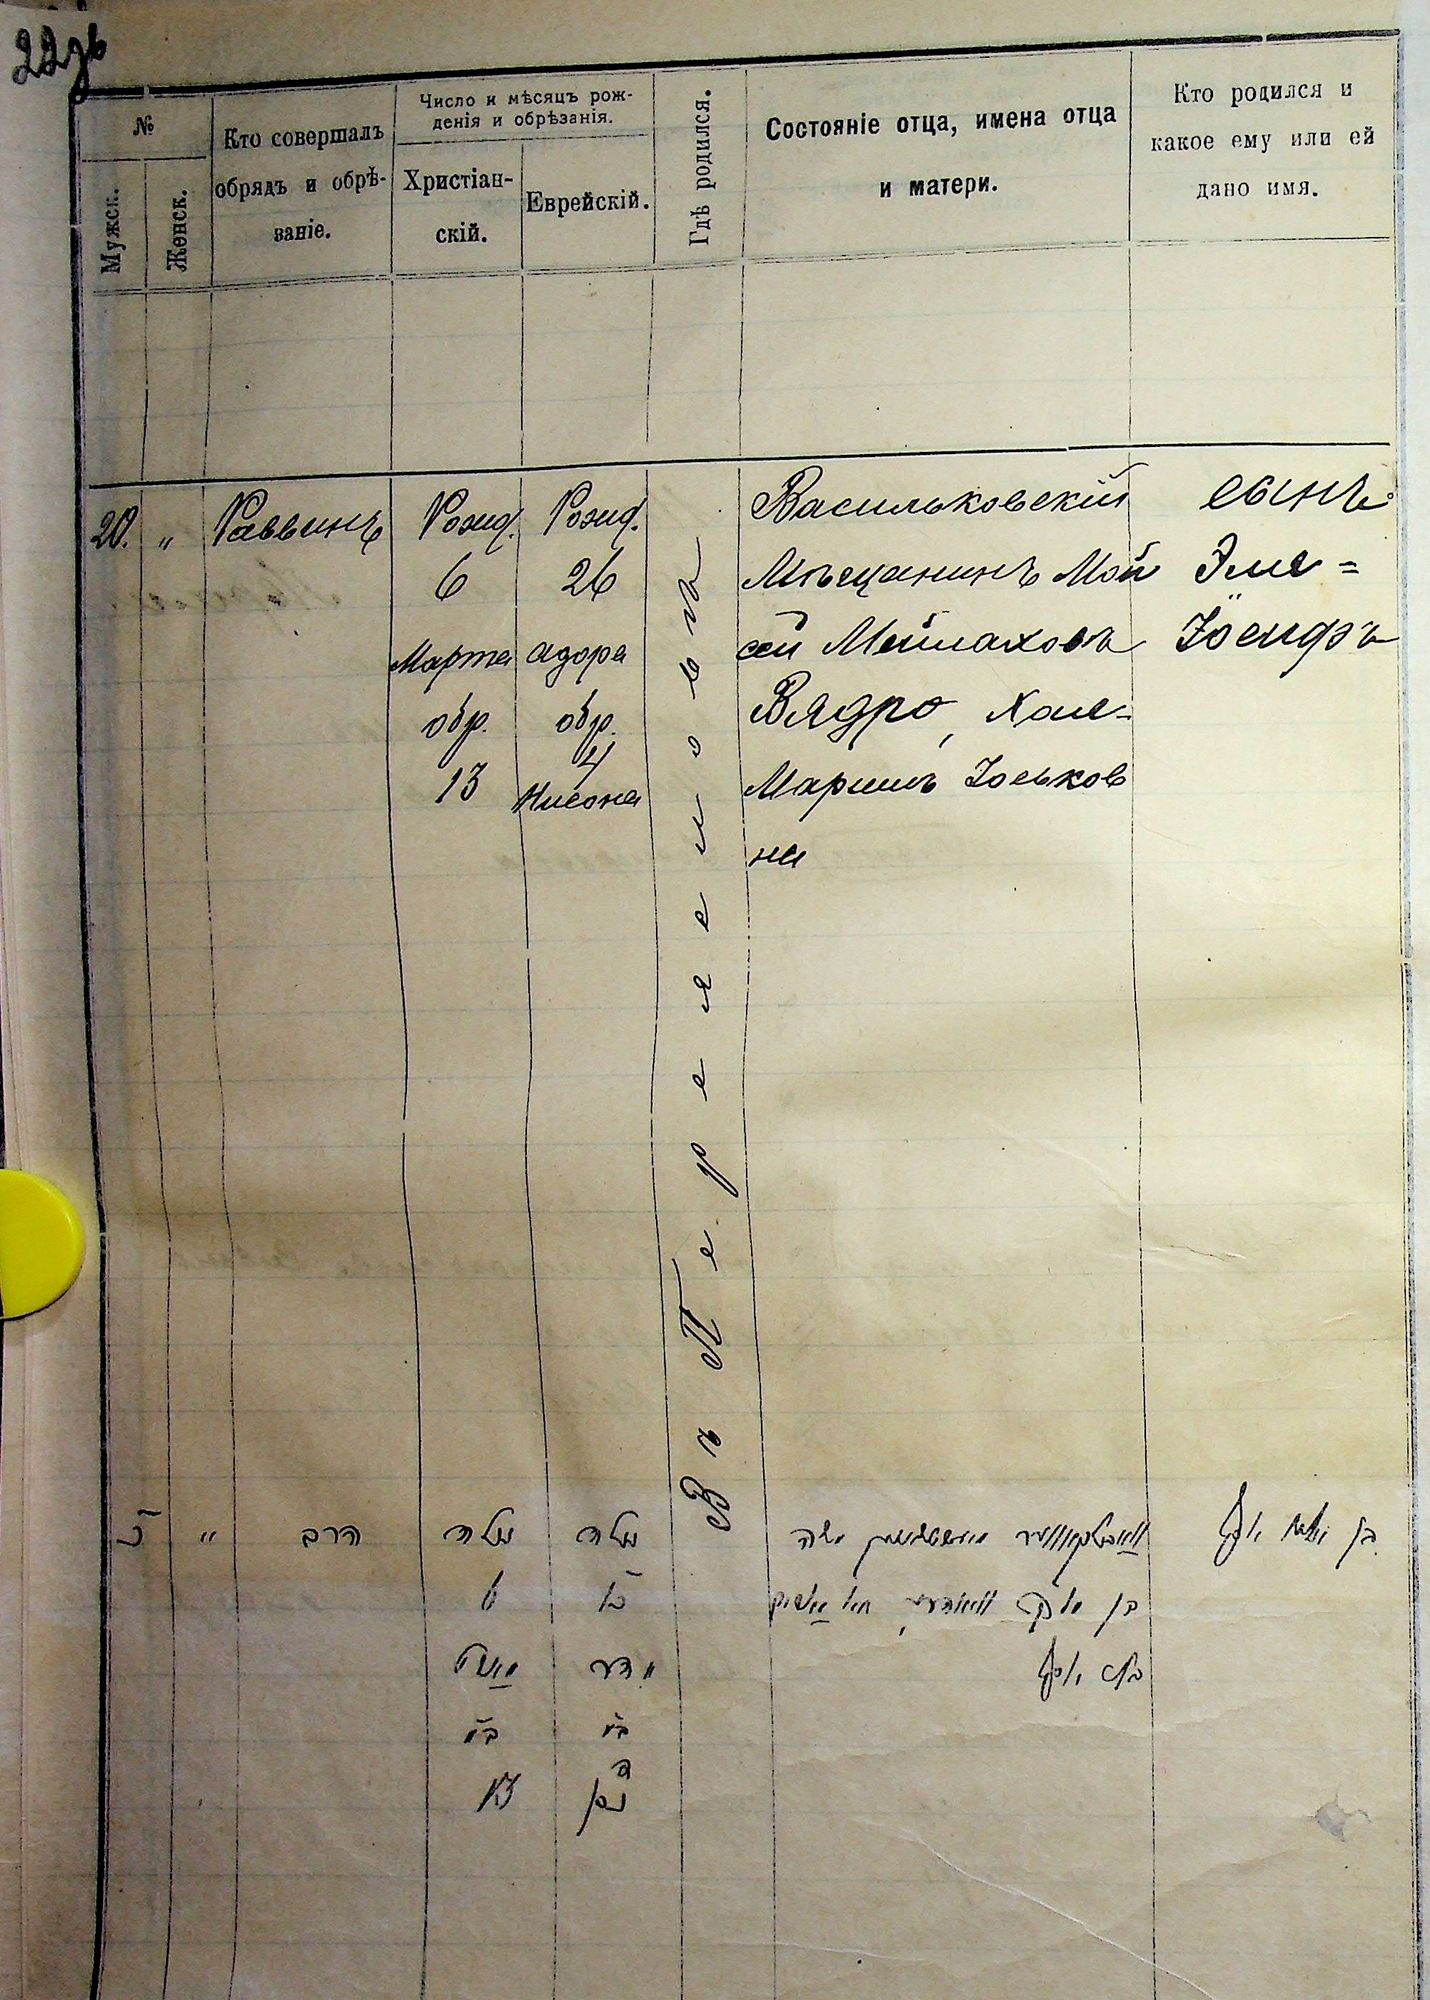 22зв
№
Мужск.
Женск.
Кто совершалъ
обрядъ и обрѣ-
заніе.
Число и мѣсяцъ рож-
денія и обрѣзанія.
Христіан-
скій.
Еврейскій.
Гдѣ родился.
Состояніе отца, имена отца
и матери.
Кто родился и
какое ему или ей
дано имя.
20.
"
Раввинъ
Рожд.
6
Марта
обр.
13
Рожд.
26
адора
обр.
4
Нисона
Въ Переяславѣ
Васильковскій
Мѣщанинъ Мой
сей Мейлаховъ
Вядро, Хая-
Маріимъ Іоськов
на
сынъ
Эля=
Іосифъ
"
הרב
נולדה
6
13
נולדה
כו
אדר
ניסן
משה
בן
בן